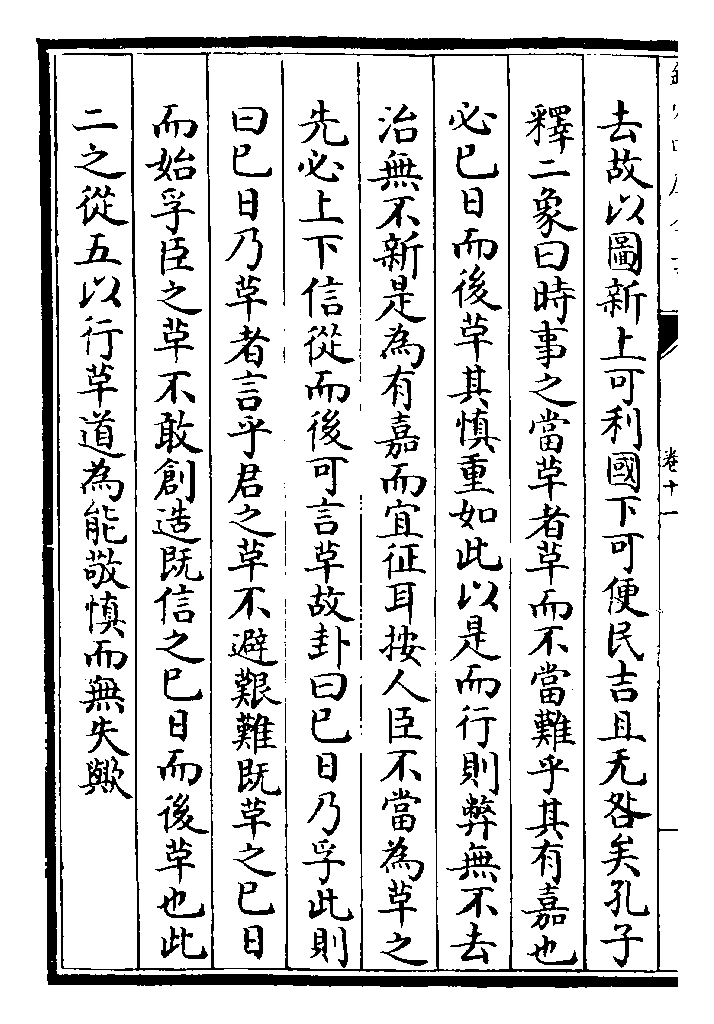 卷十一
去故以圖新上可利國下可便民吉且无咎矣孔子
釋二象曰時事之當革者革而不當難乎其有嘉也
必巳日而後革其慎重如此以是而行則弊無不去
治無不新是為有嘉而宜征耳按人臣不當為革之
先必上下信從而後可言革故卦曰巳日乃孚此則
曰巳日乃革者言乎君之革不避艱難既革之巳日
而始孚臣之革不敢創造既信之巳日而後革也此
二之從五以行革道為能敬慎而無失歟